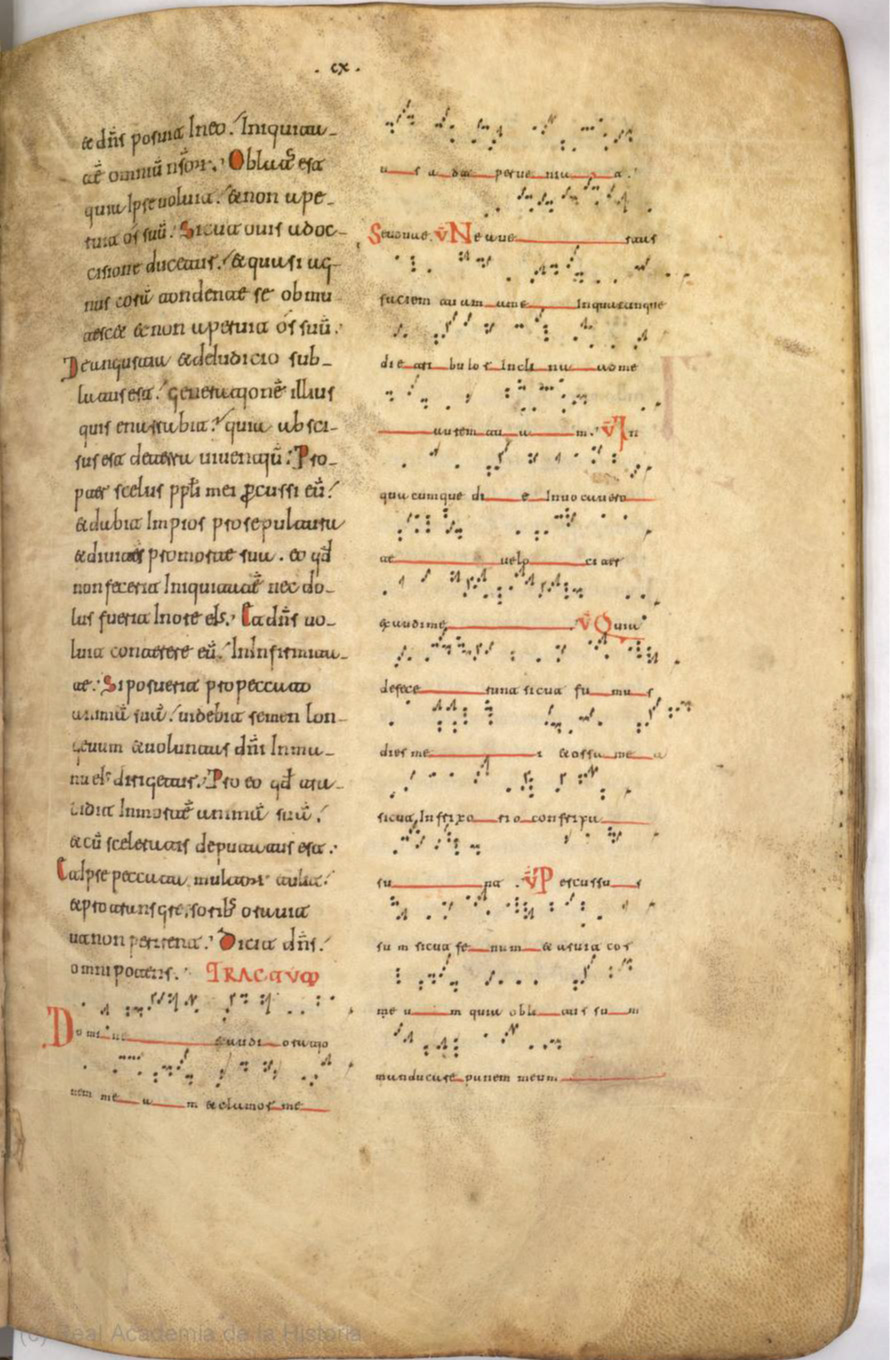 . cx .
& dñs posuit In eo. Iniquitat-
tẽ omniũ nsor̃. Oblat' est
quia Ipse uoluit. & non ape-
ruit os suũ. Sicut ouis ad oc-
cisione ducetur. & quasi ag-
nus corã tondente se obmu-
tescet & non aperuit os suũ.
De angustia & de Iudicio sub-
latus est. generationẽ illius
quis enarrabit. quia absci-
sus est de terra uiuentiũ. Pro-
pter scelus ppl̃i mei ꝑcussi eũ.
& dabit Impios pro sepultura
& diuites pro morte sua. eo qđ
non fecerit Iniquitatẽ nec do-
lus fuerit In ore eis. Et dñs uo-
luit conterere eũ. In Infirmita-
te. Si posuerit pro peccato
animã suã. uidebit semen lon-
geuum & uoluntas dñi In ma-
nu eis dirigetur. Pro eo qđ tra-
didit In mortẽ animã suã.
& cũ sceleratis deputatus est.
Et Ipse peccata multor tulit.
& pro transgressorib; orauit
ut non perirent. Dicit dñs.
omnipotens. TRACTVS
Domine exaudi oratio
nem me a m & clamor me
us a d te perue nia t a.
Ne auer tas
faciem tu am a me In quacunque
die tri bulo r Incli na ad me
aurem tu a m. V In
quacumque di e Inuocauero
te uelo citer
exaudi me V Quia
defece runt sicut fu mu s
dies me i & ossa me a
sicut In frixo rio confrixa
su nt . V Percussu s
su m sicut fe num & aruit cor
me u m quia obli tus su m
manducare panem meum
(c) Real Academia de la Historia